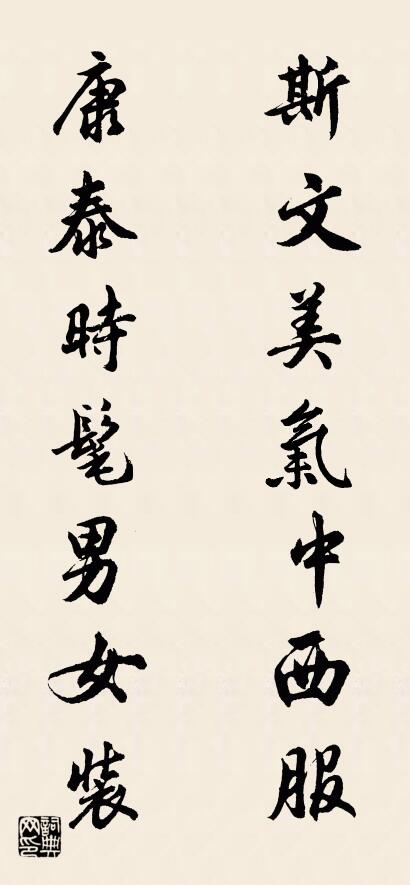 斯文美氣中西服
康泰時髦男女裝
詞典网印